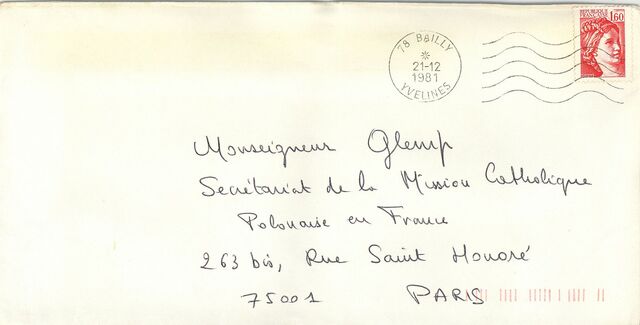 78 BAILLY
21-12
1981
YVELINES
REPUBLIQUE FRANCAISE
1,60
Monseigneur Glemp
Secrétariat de la Mission Catholique
Polonaise en France
263 bis, Rue Saint Honoré
75001 PARIS